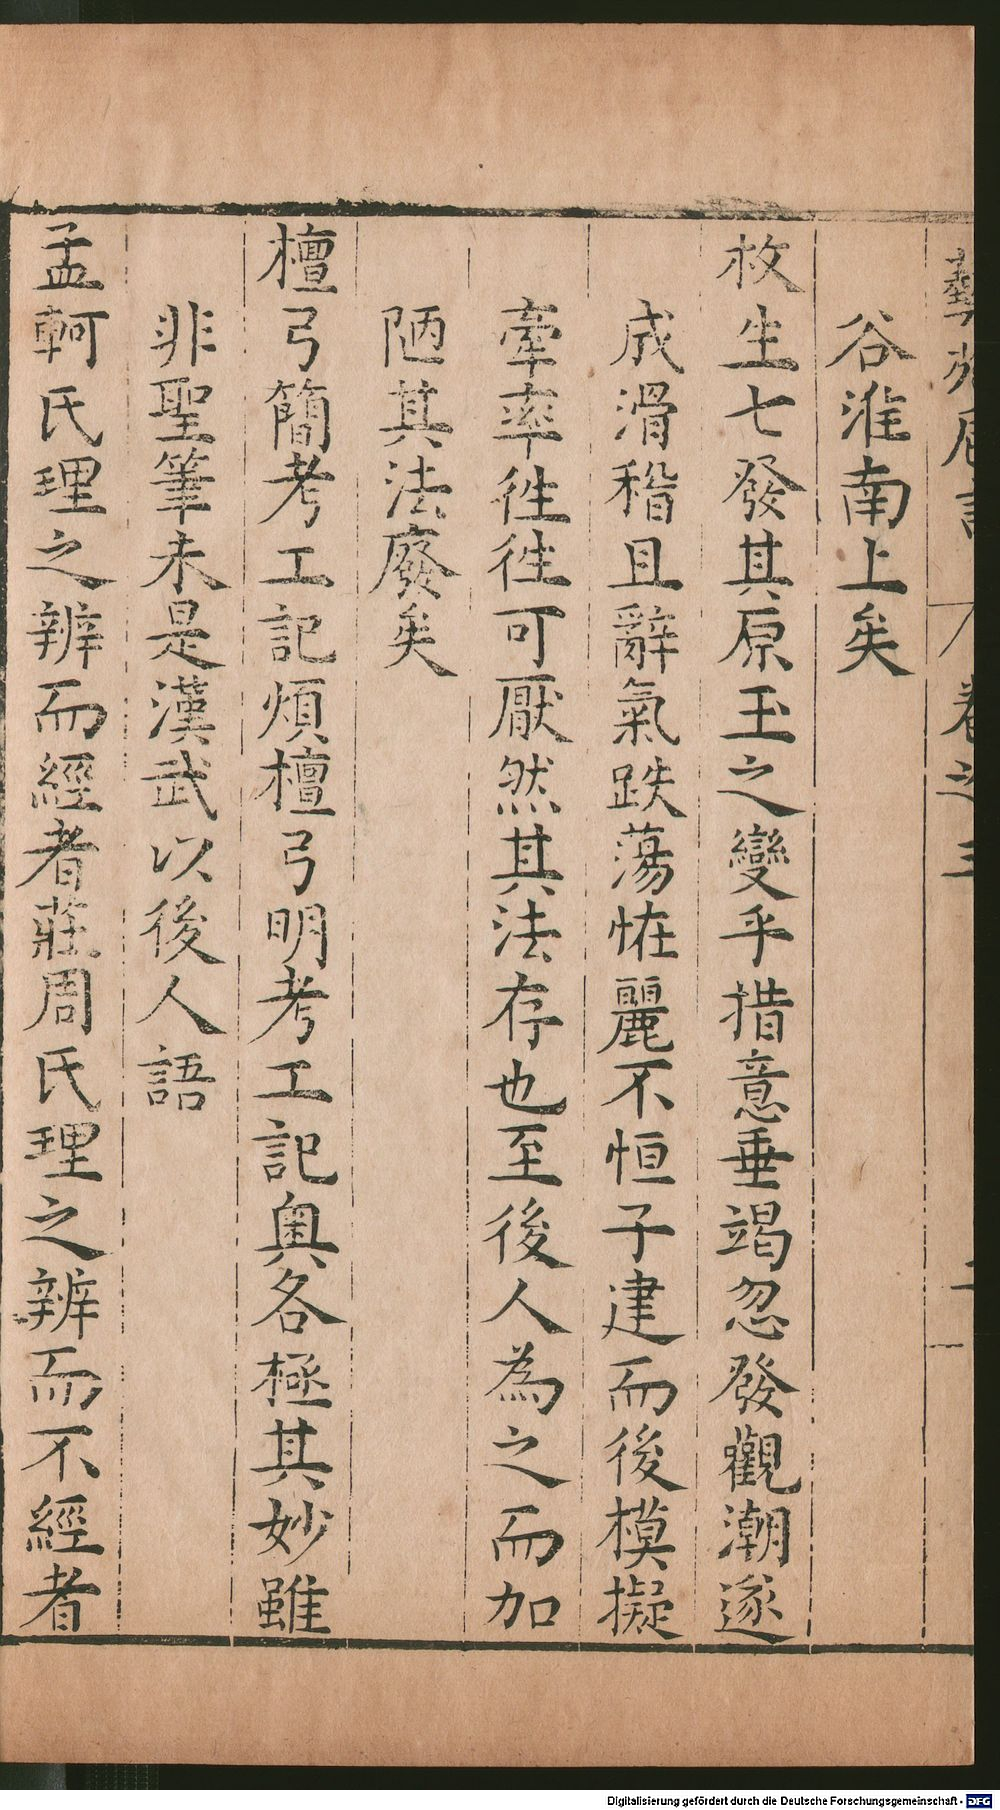 藝苑巵言 卷之三 二
谷淮南上矣
枚生七發其原玉之變乎措意垂竭忽發觀潮遂
成滑稽且辭氣跌蕩恠麗不恒子建而後模擬
牽率徃徃可厭然其法存也至後人為之而加
陋其法廢矣
檀弓簡考工記煩檀弓明考工記奥各極其妙雖
非聖筆未是漢武以後人語
孟軻氏理之辨而經者莊周氏理之辨而不經者
Digitalisierung gefördert durch die Deutsche Forschungsgemeinschaft - DFG